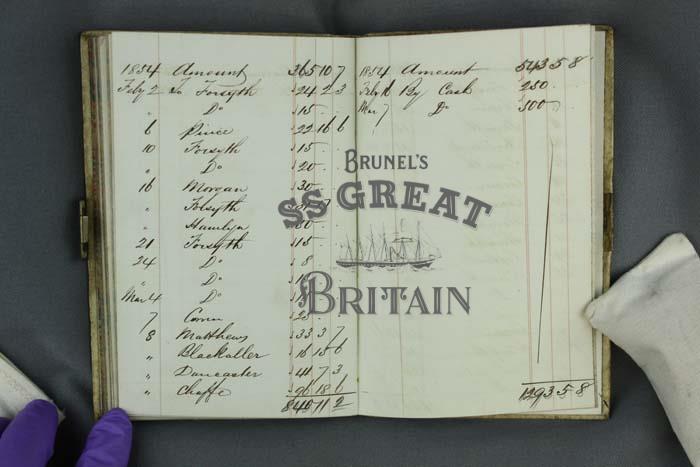 1854 Amount 365 10 7
Feby 2 To Forsyth 24 2 3
" Do 15
6 Pince 22 16 6
10 Forsyth 15
" Do 20
16 Morgan 30
" Forsyth
" Hamlyn
21 Forsyth 15
24 Do 8
" Do
Mar 4 Do
7
8 Matthews 33 3 7
" Blackaller 16 15 6
" Duncaster 4 7 3
" Chaffe 18 6
840 11 2
1854 Amount 543 5 8
Feby By Cash 250
Mar 7 Do 500
1293 5 8
BRUNEL'S
SS GREAT
BRITAIN